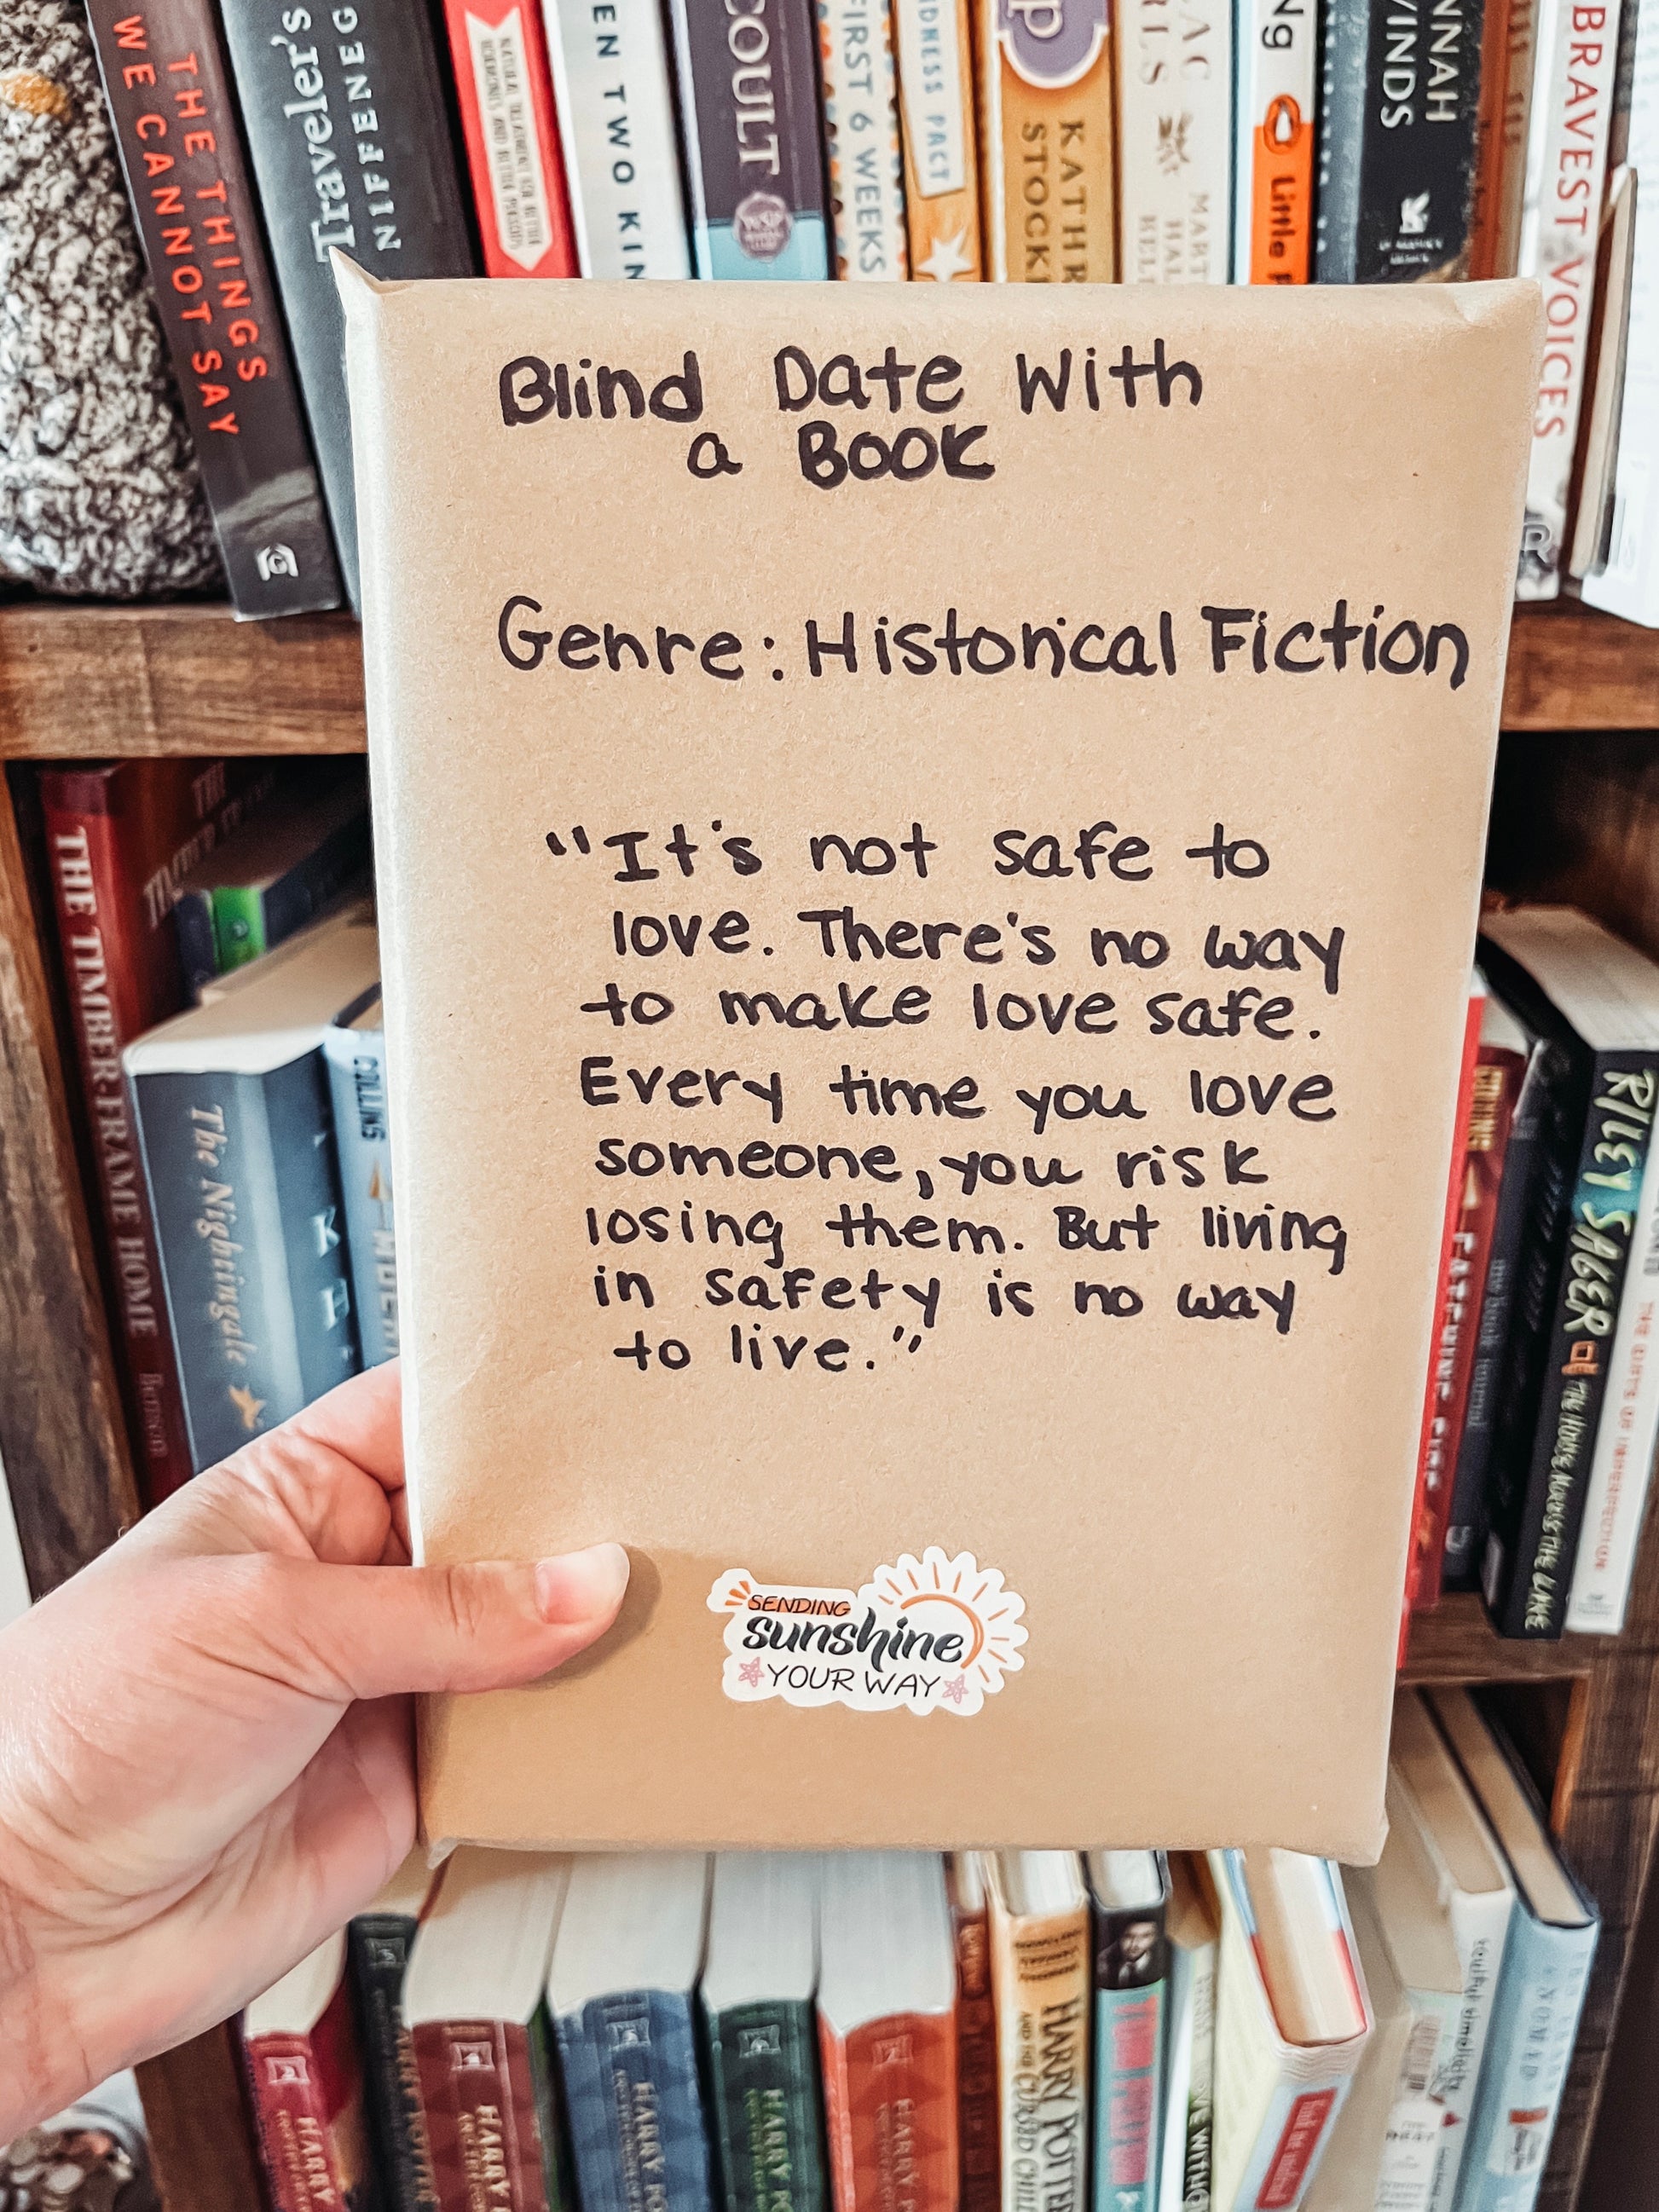 THE THINGS
WE CANNOT SAY
Traveler's
NIFFENEG
EN TWO KIN
COULT
FIRST 6 WEEKS
DNESS PACT
KATHR
STOCK
Little F
NNAH
BRAVEST VOICES
Blind Date With
a Book
Genre: Historical Fiction
"It's not safe to
love. There's no way
to make love safe.
Every time you love
someone, you risk
losing them. But living
in safety is no way
to live."
SENDING
sunshine
YOUR WAY
THE TIMBER-FRAME HOME
Benson
The Nightingale
COLLINS
RILEY SAGER
THE GIFTS OF IMPERFECTION
HARRY
HARRY
HARRY PO
HARRY
HARRY P
HARRY POTTER
AND THE CURSED CHIL